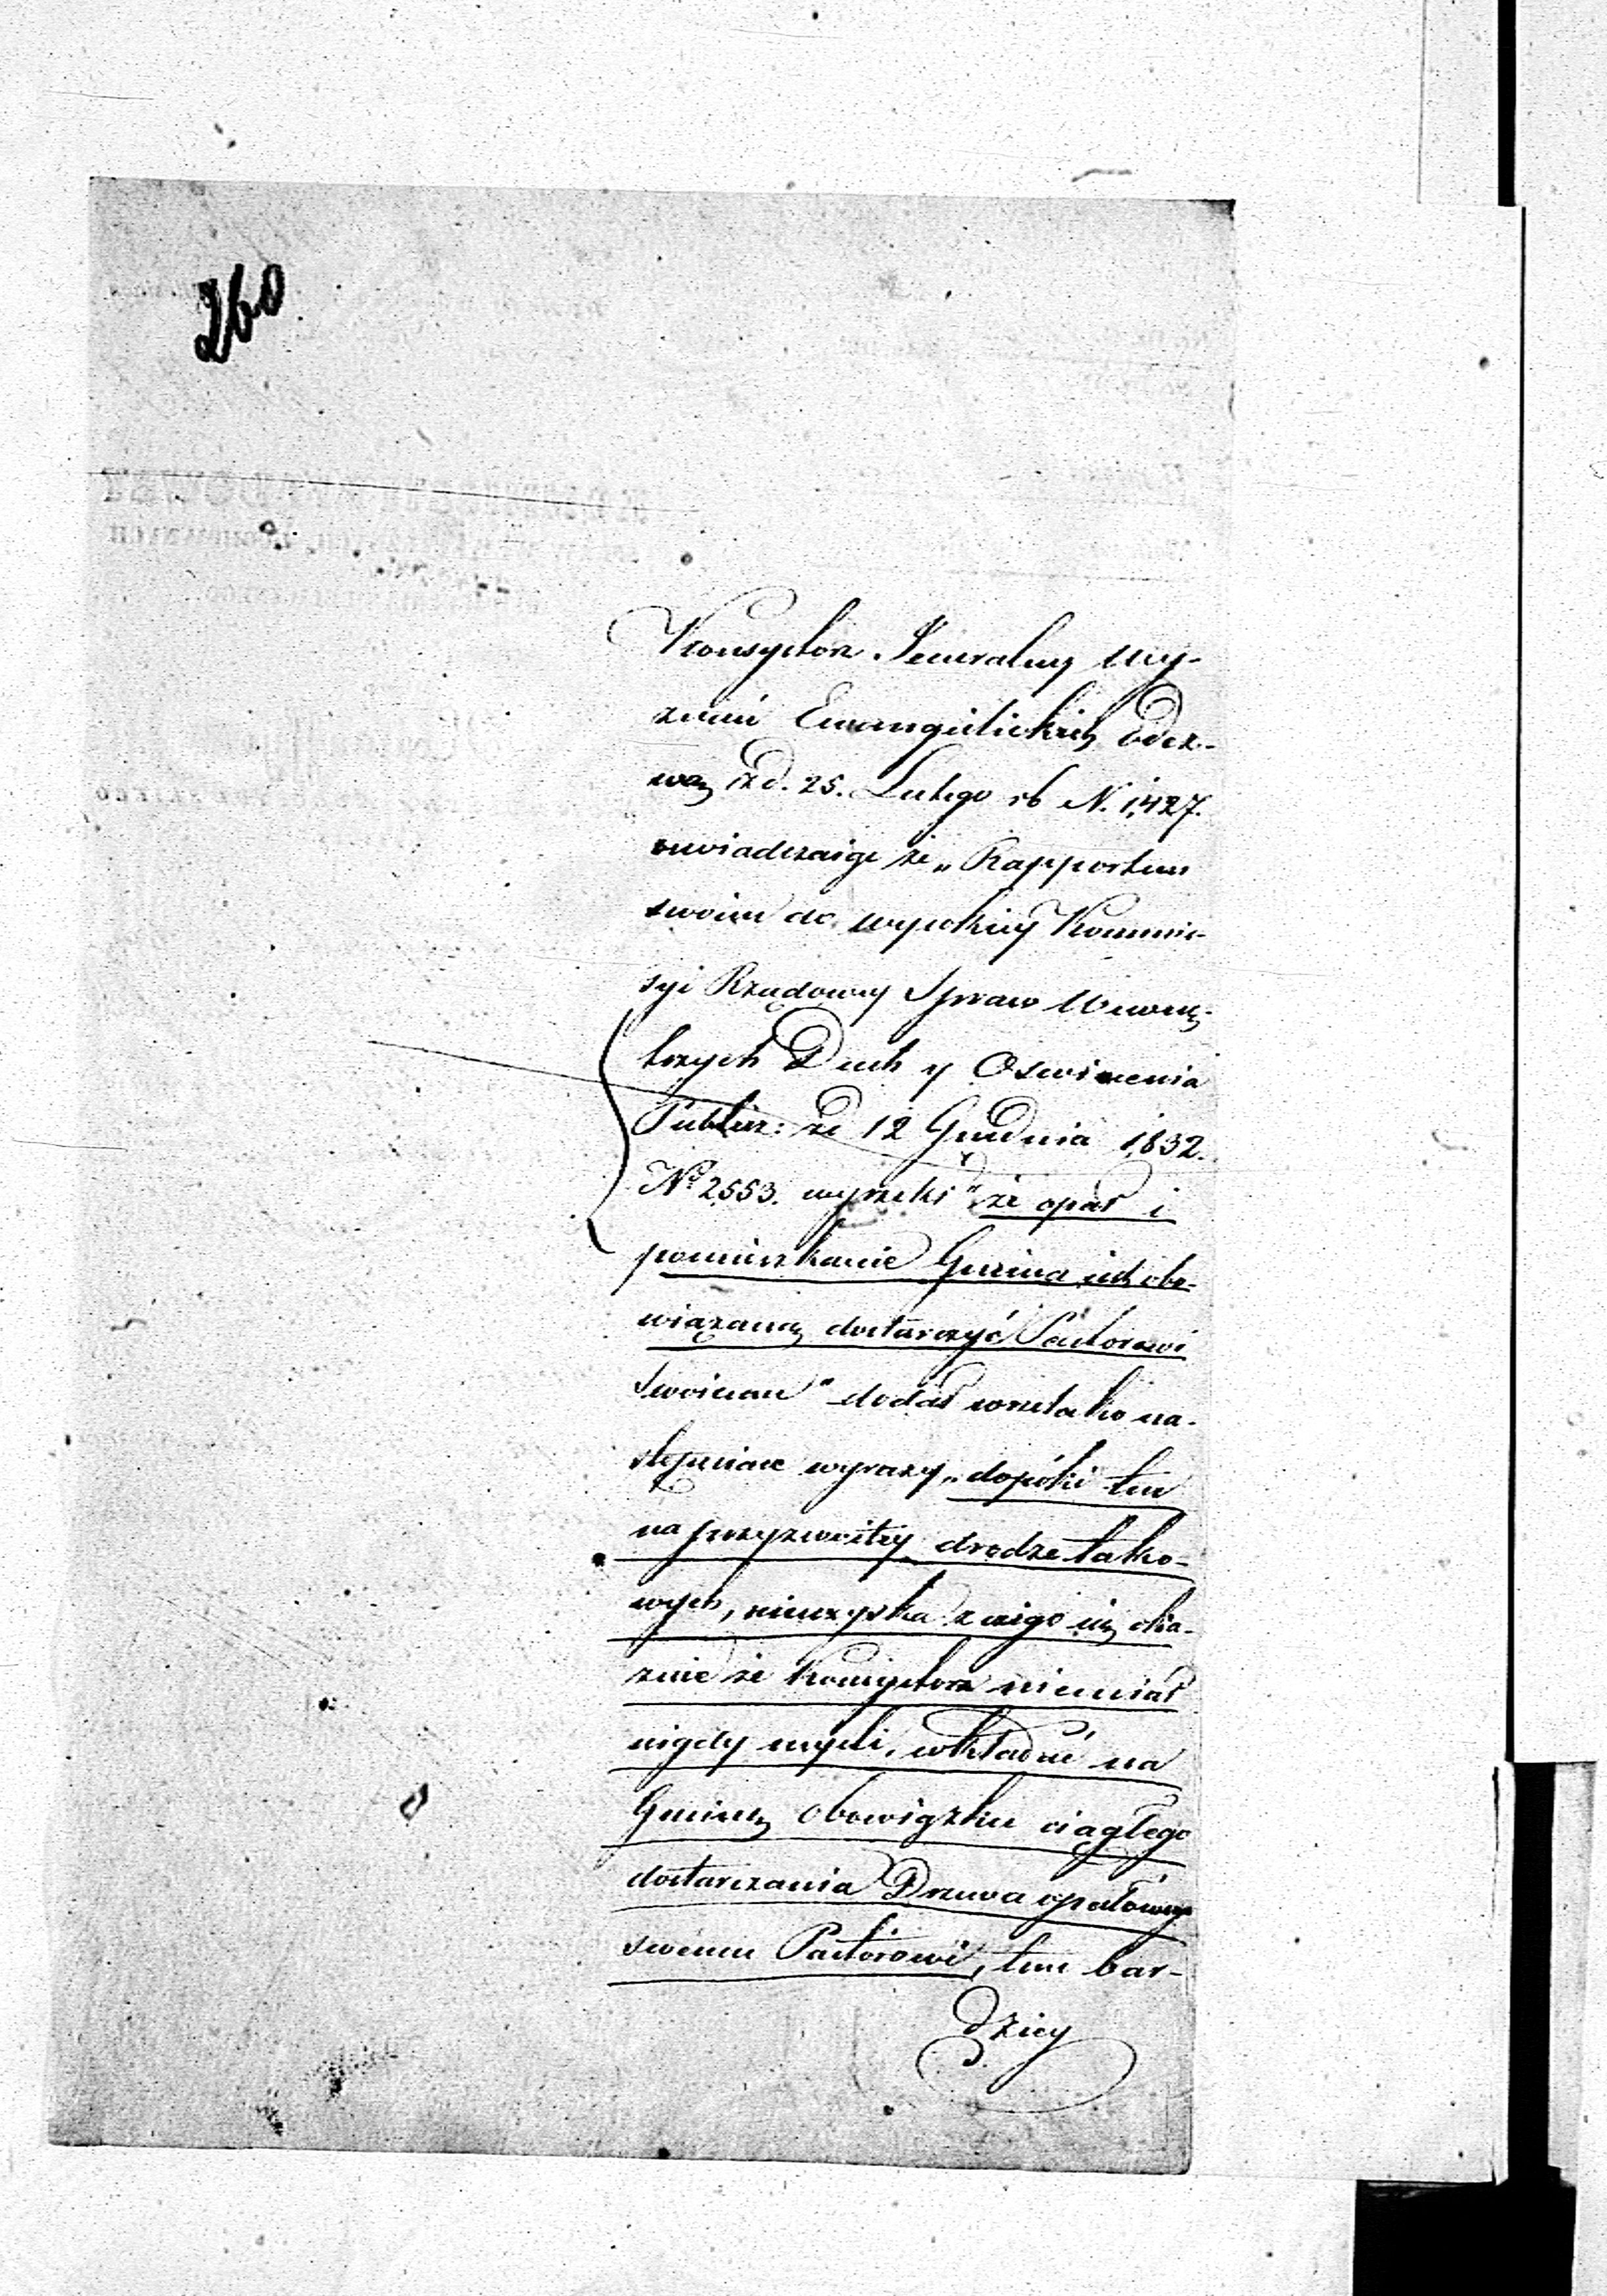 260
Konsystorz Jeneralny Wy-
znań Ewangelickich Odez-
wą z d. 25. Lutego rb N. 1,427.
oswiadczaiąc że „Rapportem
swoim do wysokiey Kommis-
syi Rządowey Spraw Wewnę-
trznych Duch y Oswiecenia
Publicz: zd 12 Grudnia 1,832.
No 2553. wyrzekł "że opał i
pomieszkanie Gmina iest obo-
wiązaną dostarczyć Pastorowi
swoiemu" dodał wszelako na-
stępuiące wyrazy „dopóki ten
na przyzwoitey drodze tako-
wych, nieuzyska z czego się oka-
zuie że Konsystorz niemiał
nigdy myśli, wkładać na
Gminę obowiązku ciągłego
dostarczania Drzewa opałowego
swemu Pastorowi, tem bar-
dziey